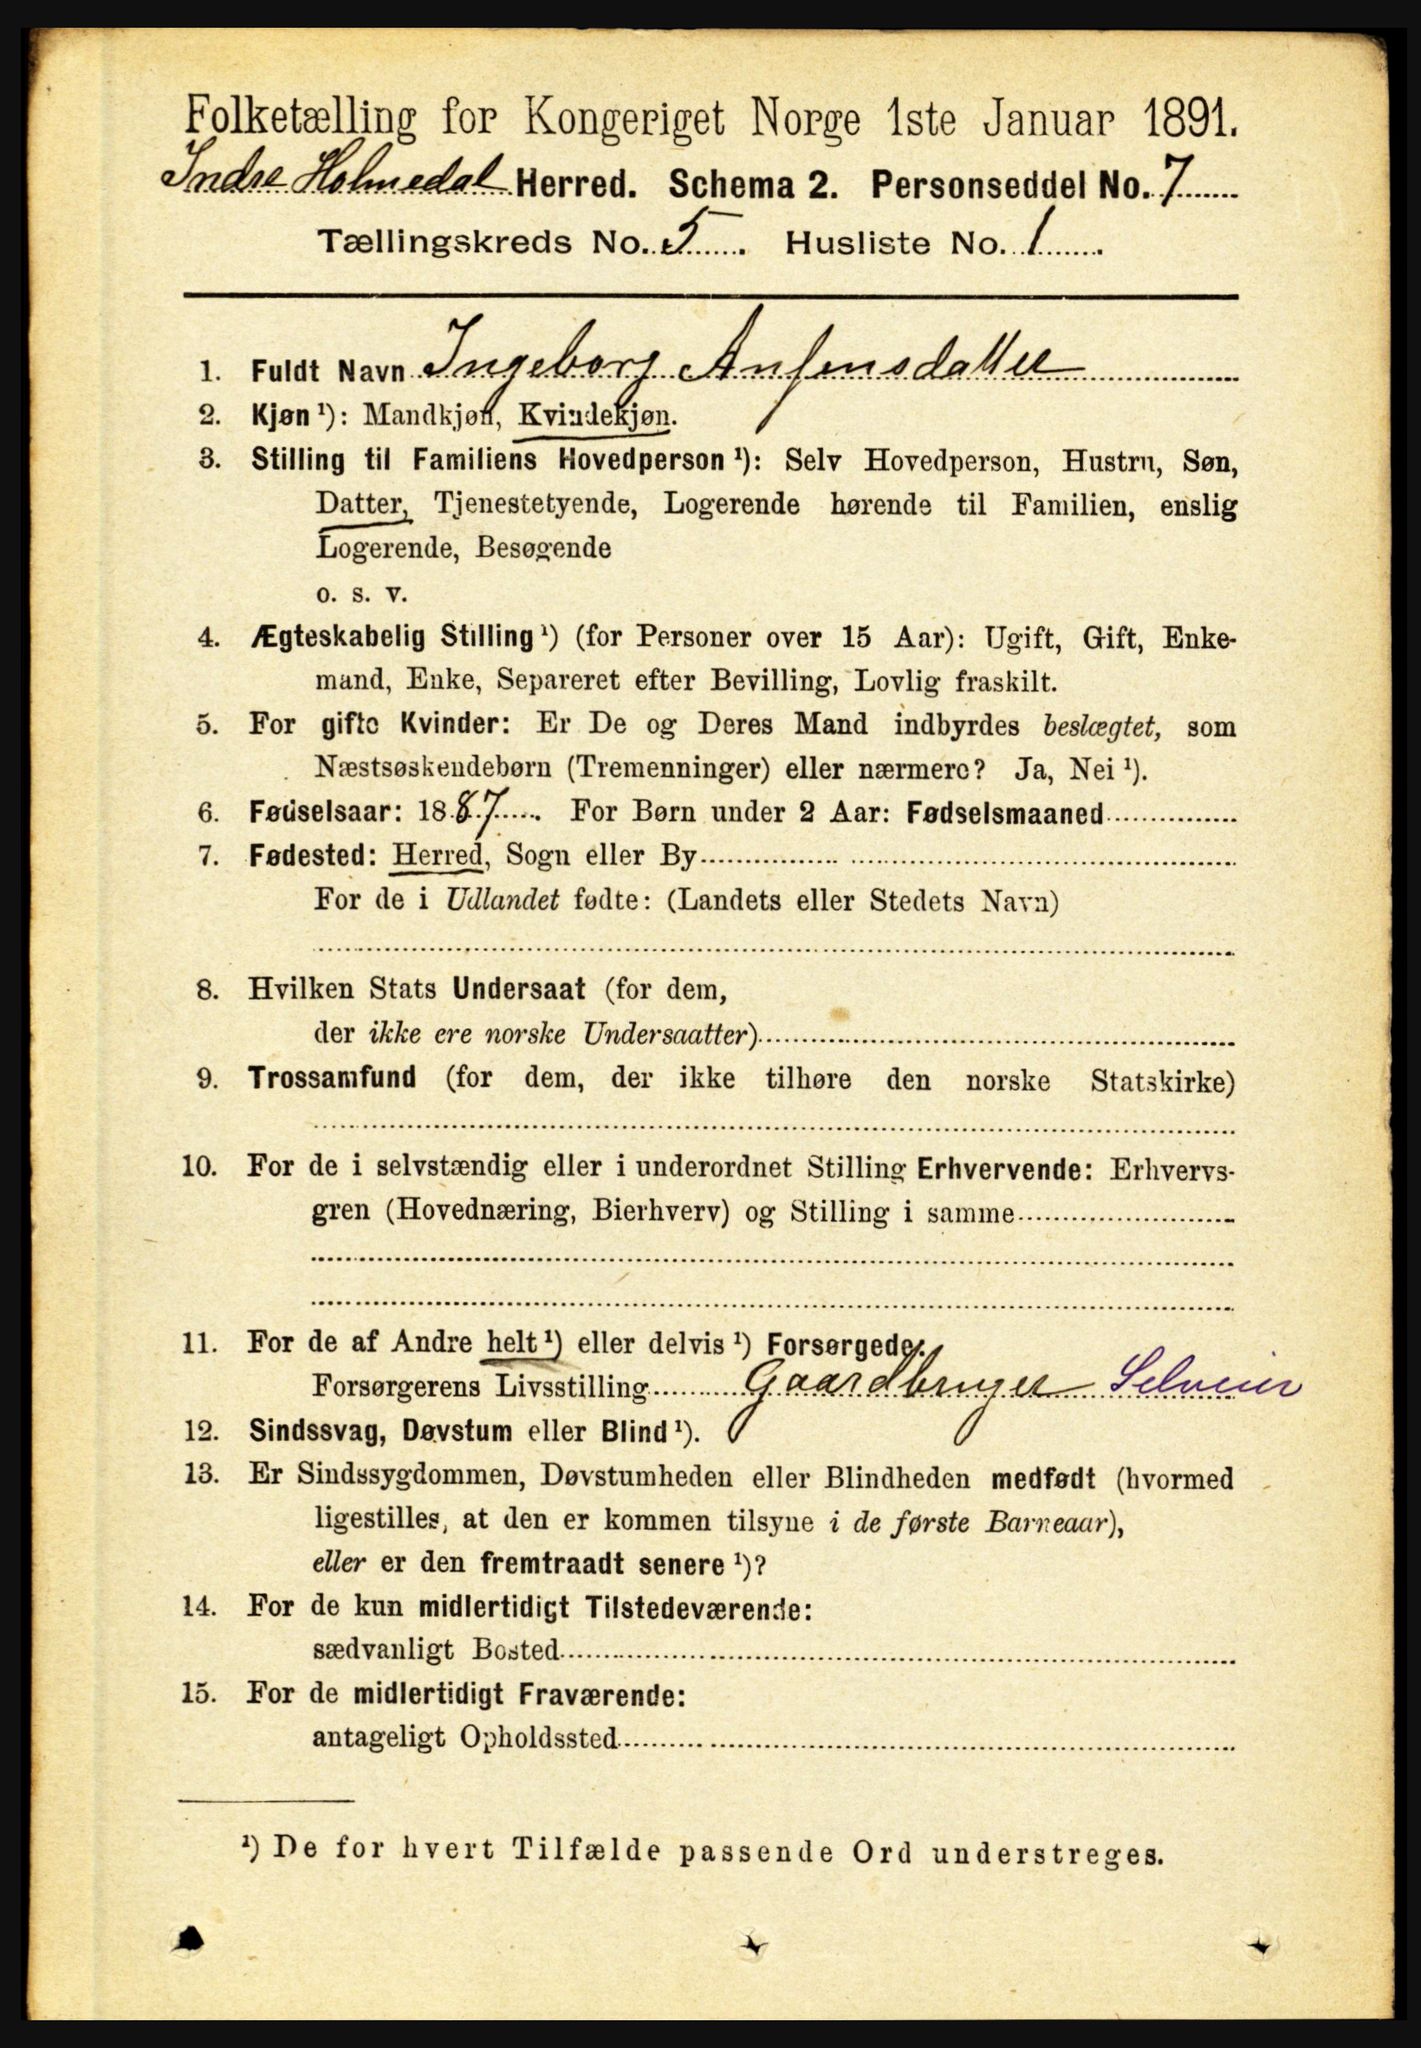 Folketælling for Kongeriget Norge 1ste Januar 1891.
Indre Holmedal Herred. Schema 2. Personseddel No. 7
Tællingskreds No. 5. Husliste No. 1.
1. Fuldt Navn Ingeborg Anfinsdatter
2. Kjøn ¹): Mandkjøn, Kvindekjøn.
3. Stilling til Familiens Hovedperson ¹): Selv Hovedperson, Hustru, Søn,
Datter, Tjenestetyende, Logerende hørende til Familien, enslig
Logerende, Besøgende
o. s. v.
4. Ægteskabelig Stilling ¹) (for Personer over 15 Aar): Ugift, Gift, Enke-
mand, Enke, Separeret efter Bevilling, Lovlig fraskilt.
5. For gifte Kvinder: Er De og Deres Mand indbyrdes beslægtet, som
Næstsøskendebørn (Tremenninger) eller nærmere? Ja, Nei ¹).
6. Fødselsaar: 1887. For Børn under 2 Aar: Fødselsmaaned
7. Fødested: Herred, Sogn eller By
For de i Udlandet fødte: (Landets eller Stedets Navn)
8. Hvilken Stats Undersaat (for dem,
der ikke ere norske Undersaatter)
9. Trossamfund (for dem, der ikke tilhøre den norske Statskirke)
10. For de i selvstændig eller i underordnet Stilling Erhvervende: Erhvervs-
gren (Hovednæring, Bierhverv) og Stilling i samme
11. For de af Andre helt ¹) eller delvis ¹) Forsørgede:
Forsørgerens Livsstilling Gaardbruger Selveier
12. Sindssvag, Døvstum eller Blind ¹).
13. Er Sindssygdommen, Døvstumheden eller Blindheden medfødt (hvormed
ligestilles, at den er kommen tilsyne i de første Barneaar),
eller er den fremtraadt senere ¹)?
14. For de kun midlertidigt Tilstedeværende:
sædvanligt Bosted
15. For de midlertidigt Fraværende:
antageligt Opholdssted
¹) De for hvert Tilfælde passende Ord understreges.